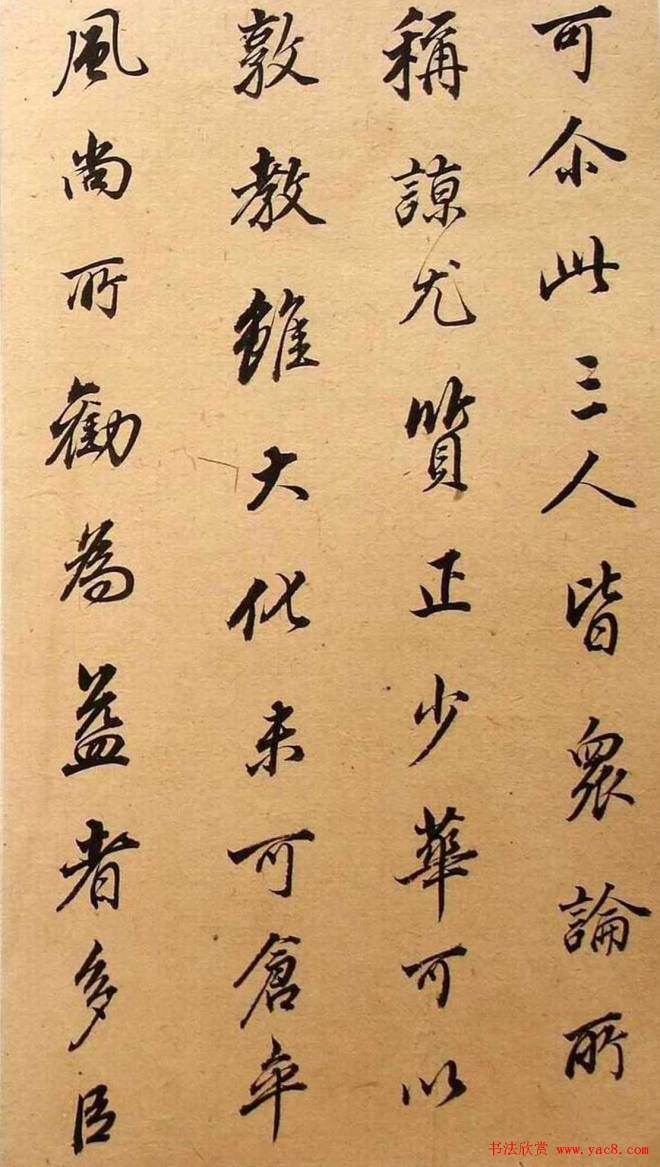 可尒此三人皆眾論所
稱諒尤質正少華可以
敦教雖大化未可倉卒
風尚所勸為益者多臣
书法欣赏 www.yac8.com